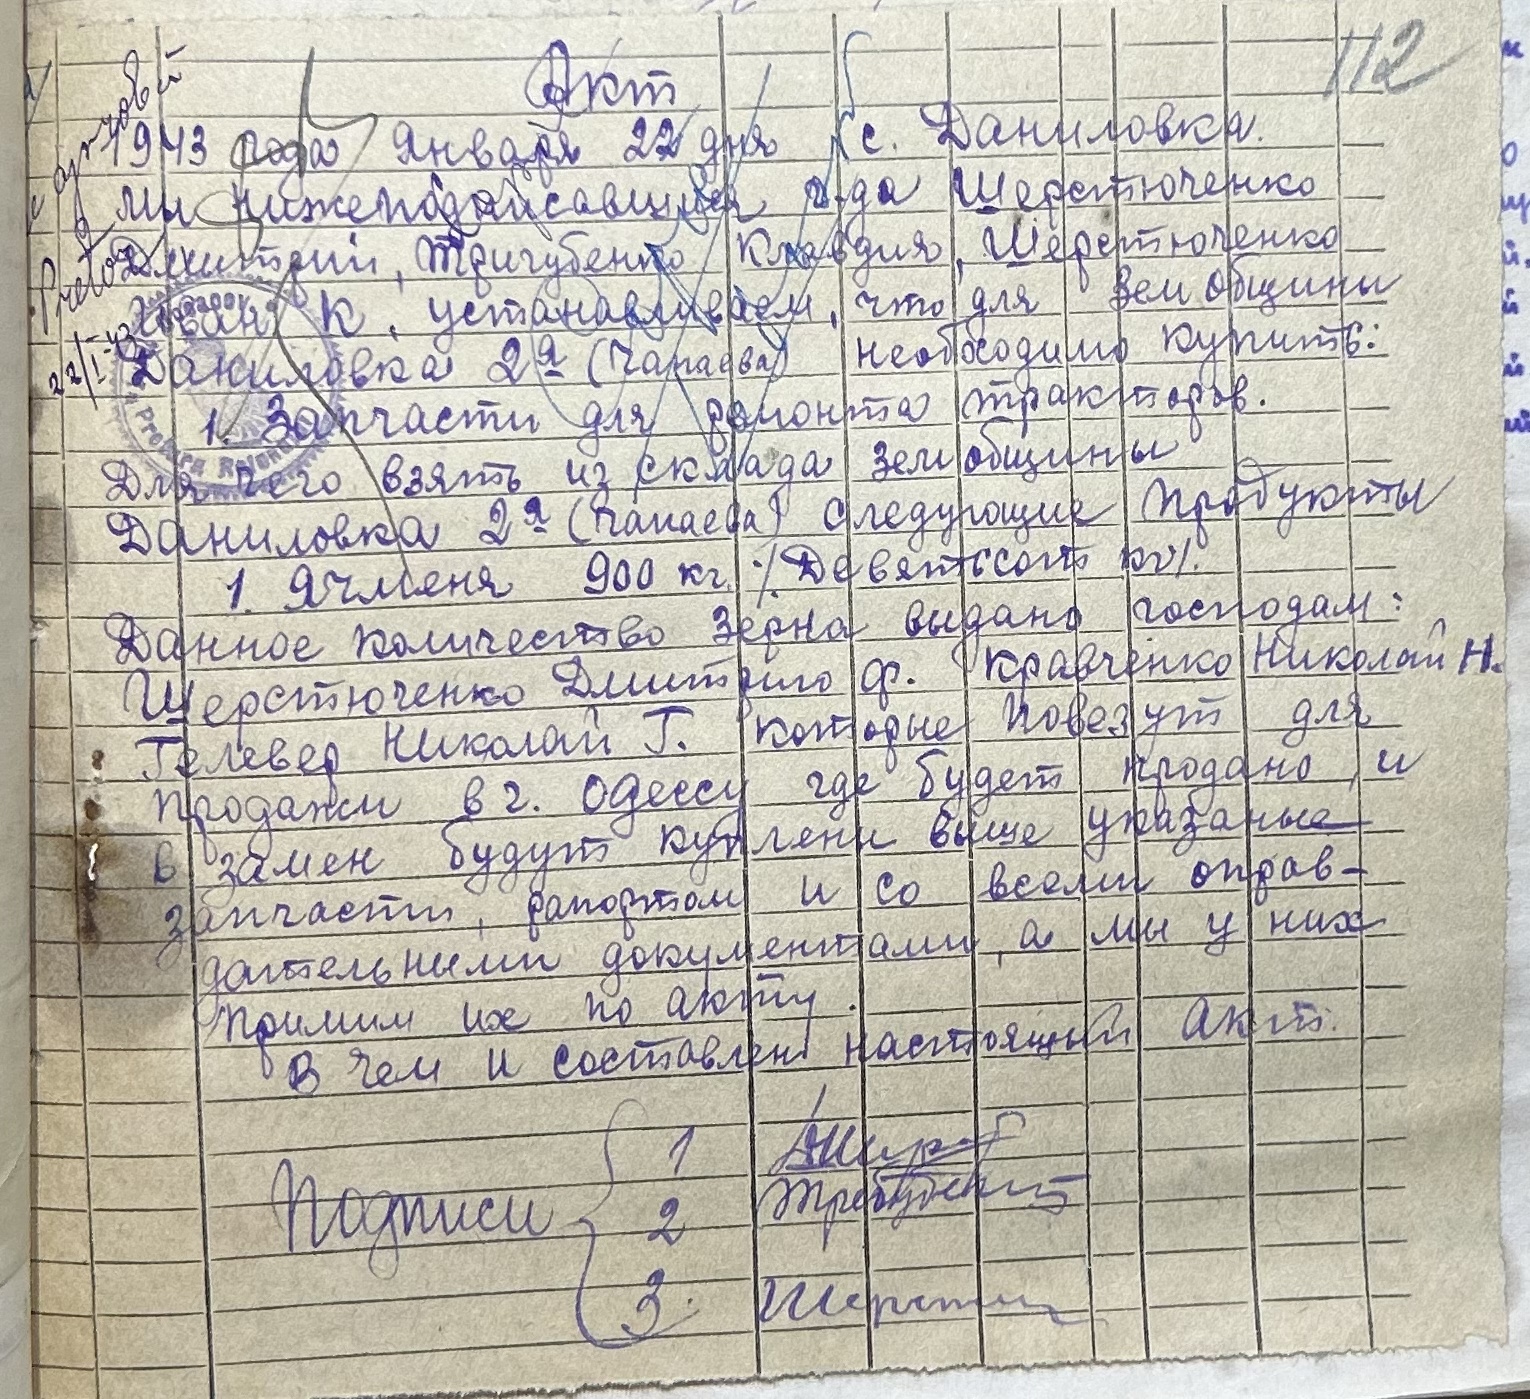 112
Акт
1943 года января 22 дня с. Даниловка.
мы нижеподписавшиеся г.да Шерстюченко
Дмитрий, Тригубенко Клавдия, Шерстюченко
Иван К, устанавливаем, что для земобщины
Даниловка 2я (Чапаева) необходимо купить:
1. Запчасти для ремонта тракторов.
Для чего взять из склада земобщины
Даниловка 2я (Чапаева) следующие продукты
1. Ячменя 900 кг. ·/. Девятьсот кг/.
Данное количество зерна выдано господам:
Шерстюченко Дмитрию Ф. Кравченко Николай Н.
Гелевер Николай Г. которые повезут для
продажи в г. Одессу где будет продано, и
в замен будут куплени выше указаные
запчасти, рапортом и со всеми оправ-
дательными документами, а мы у них
примим их по акту.
В чем и составлен настоящий акт.
Подписи
1
2
3.
22/I-43